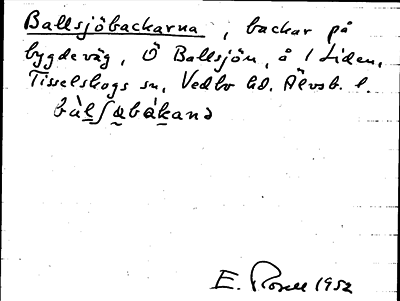 Ballsjöbackarna, backar på
bygdeväg, Ö Ballsjön, å 1 Liden,
Tisselskogs sn, Vedbo hd. Älvsb. l.
bàlʃabákanə
E. Rosell 1952